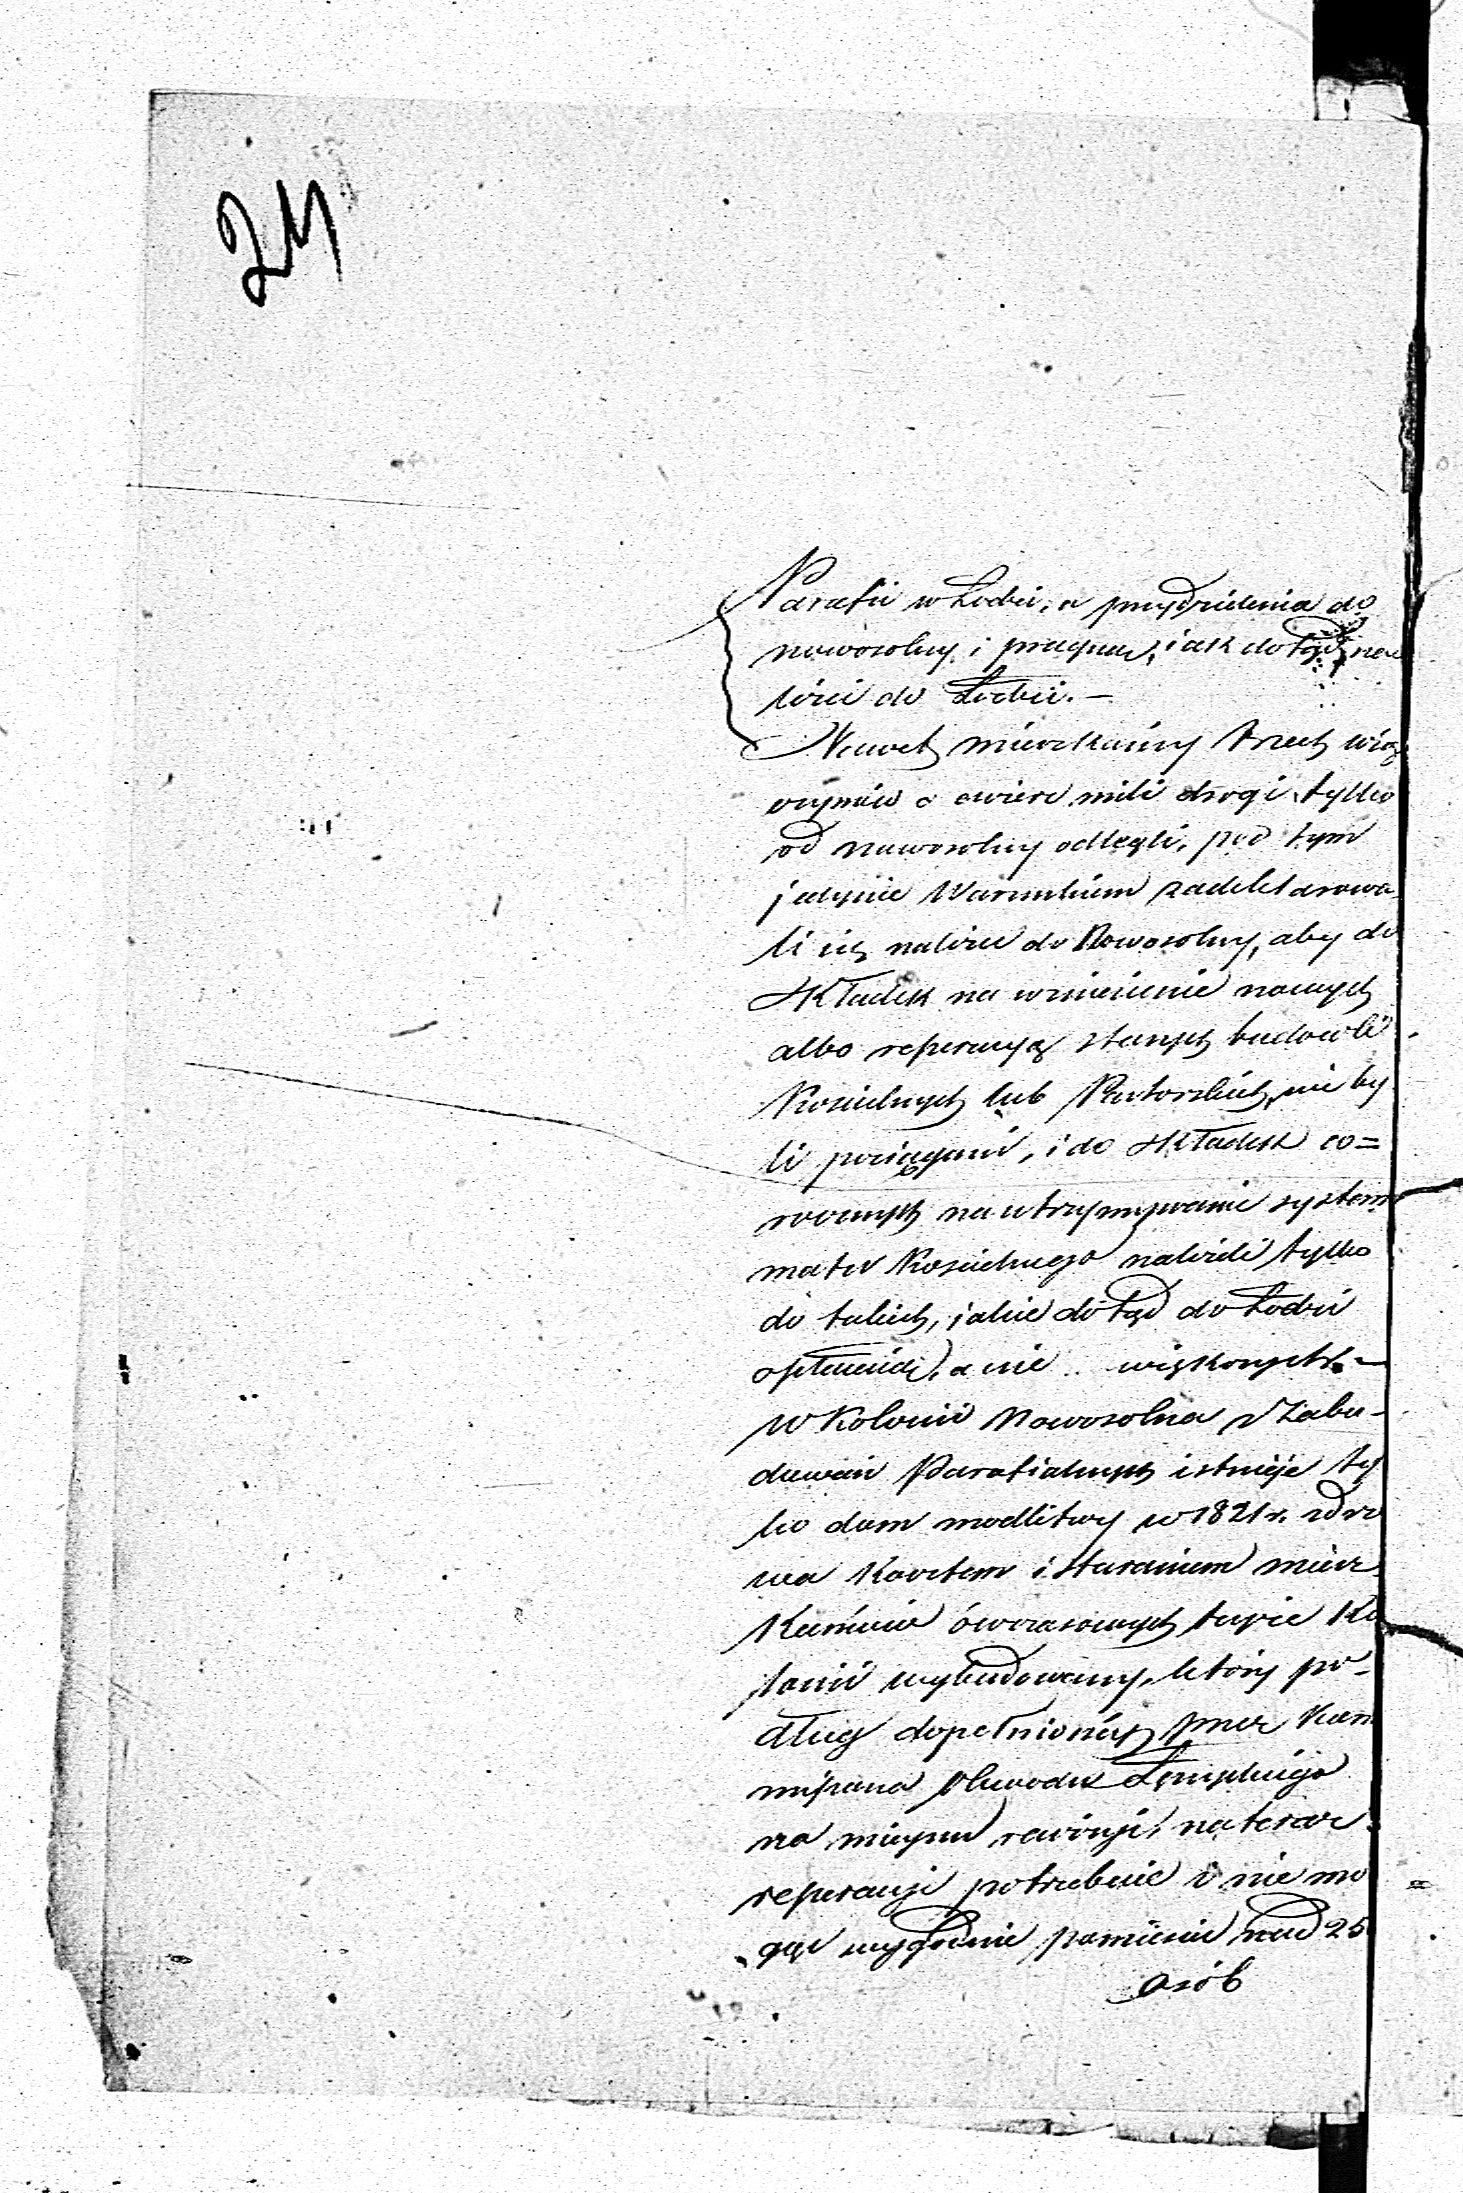 24
Parafii w Łodzi, a przydzielenia do
nowosolny i pragną, iak dotąd nale
żeć do Łodzi. —
Nawet mieszkańcy trzech wio
o ćwierć mili drogi tylko
od nowosolny odlegli, pod tym
jedynie Warunkiem zadeklarowa
li się należeć do Nowosolny, aby do
składek na wzniesienie nowych
albo reperacyą starych budowli
Kościelnych lub Pastorskich, nie by
li pociągani, i do składek co=
rocznych na utrzymywanie system
matu Kościelnego należeli tylko
do takich, jakie dotąd do Łodzi
opłacali, a nie większych. —
W Kolonii Nowosolna z Zabu-
dowań Parafialnych istnieje ty
ko dom modlitwy w 1821 r. z drze
wa Kosztem i staraniem miesz
kańców ówczasowych tejże Ko
lonii wybudowany, który po-
dług dopełnionéj przez Kom
misarza Obwodu Łęczyckiego
na miejscu rewizyi, na teraz
reperacyi potrzebuie i nie mo
gąc wygodnie pomieścić nad 25
osób